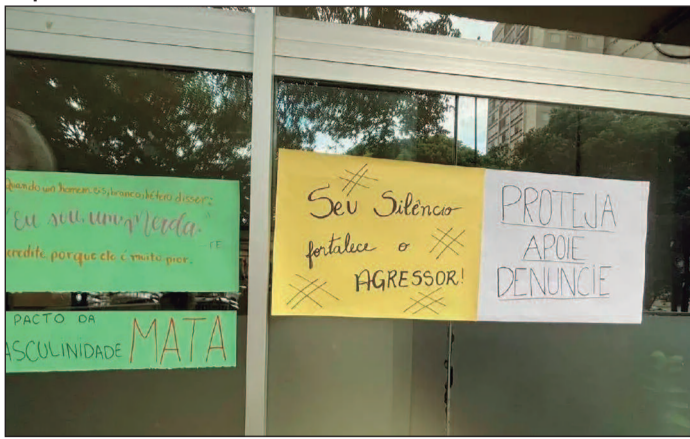 Quando um homem cis, branco, hétero disser:
"Eu sou uma merda"
credite porque ele é muito pior.
PACTO DA
ASCULINIDADE MATA
SEU Silêncio
fortalece o
AGRESSOR!
PROTEJA
APOIE
DENUNCIE